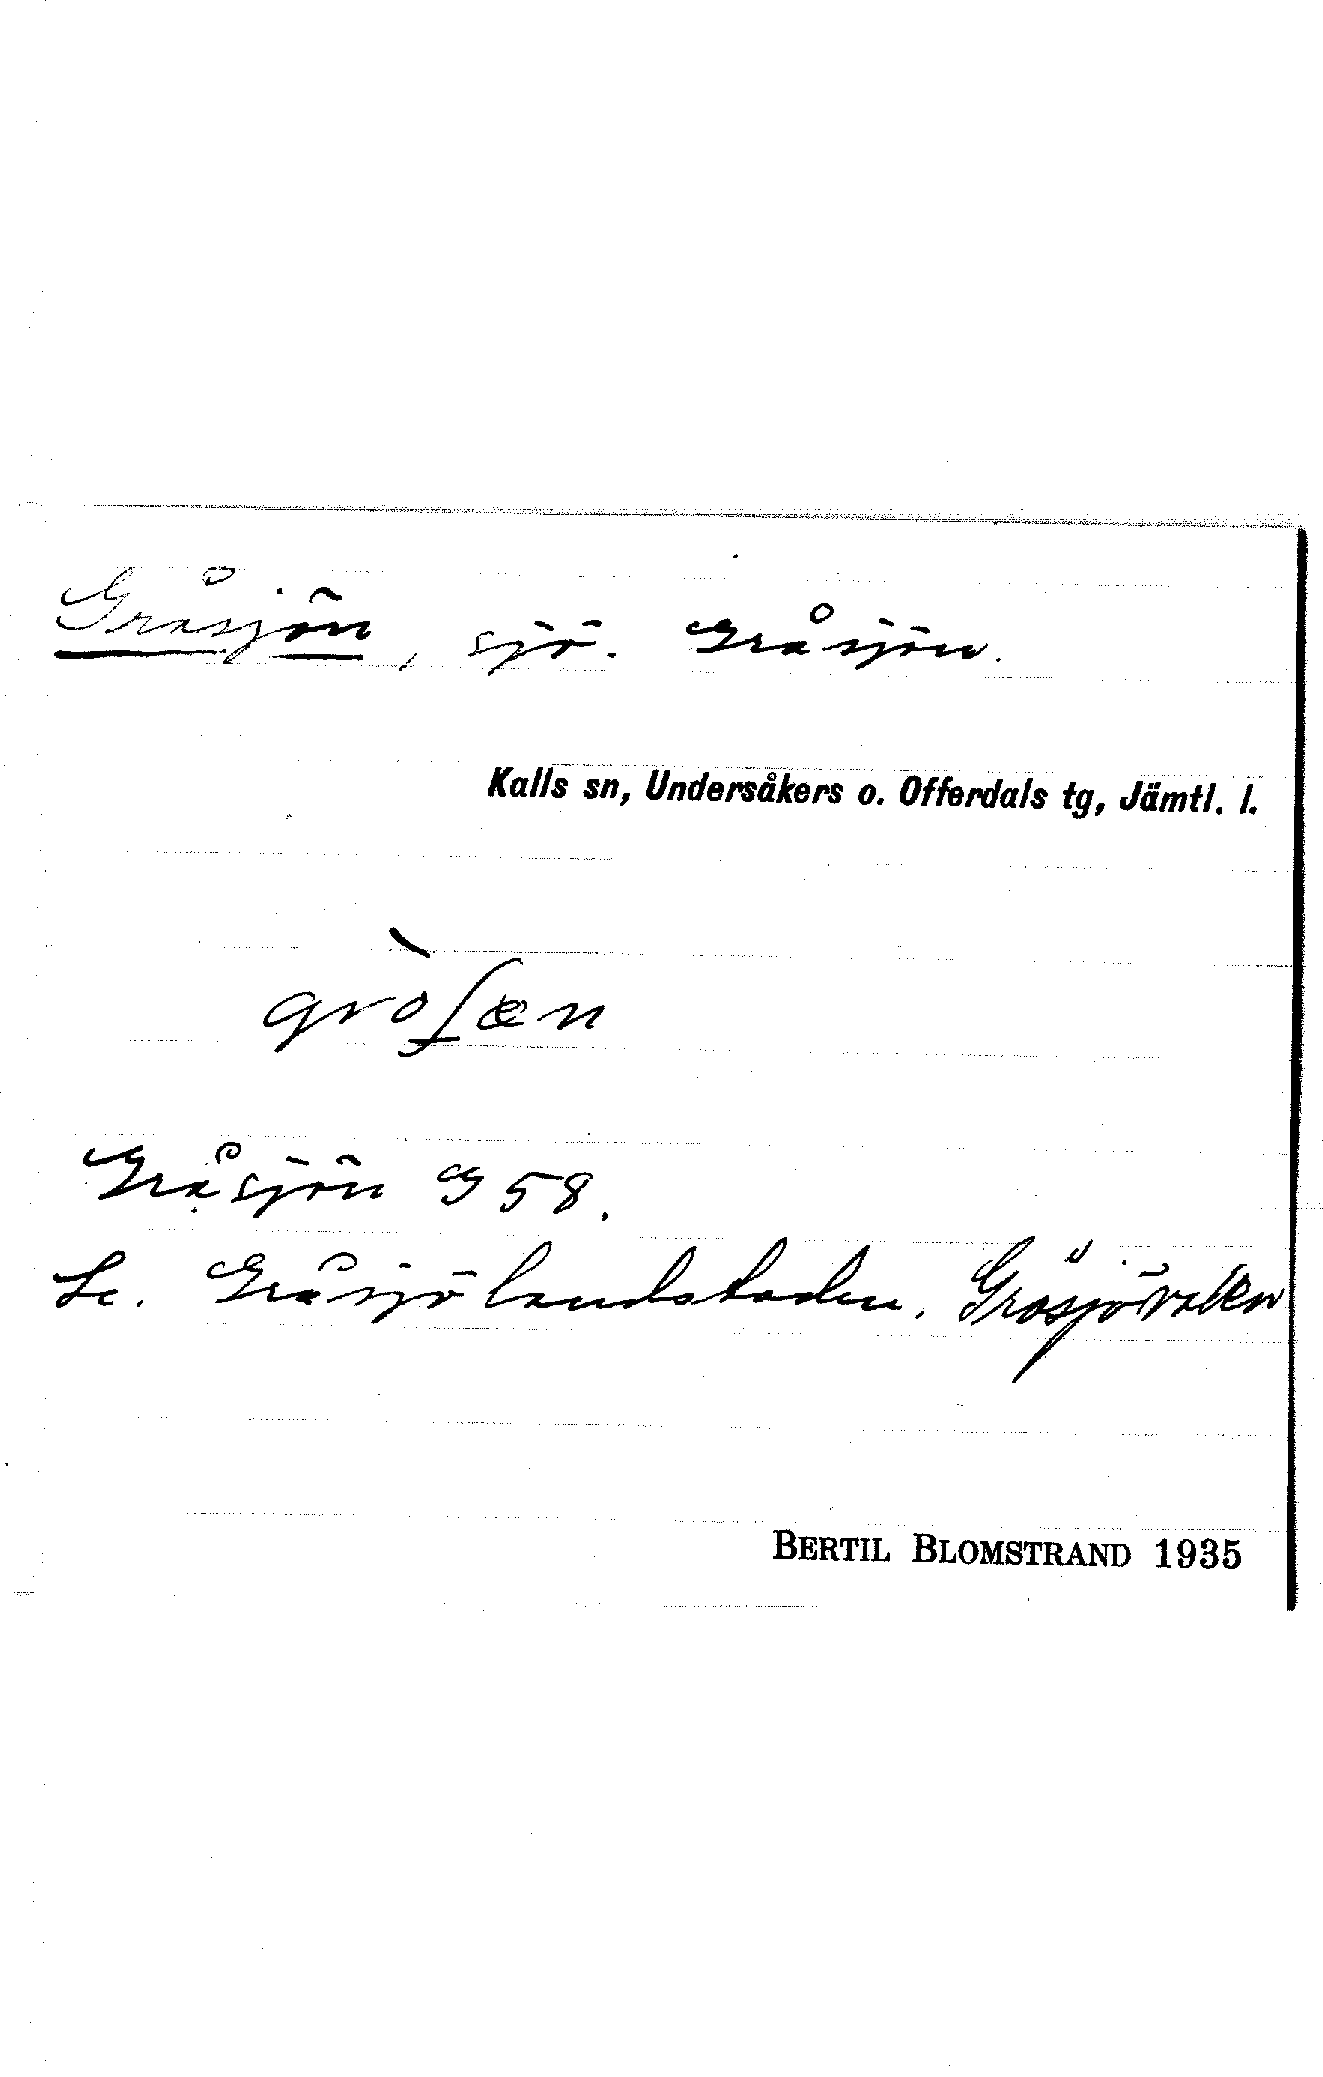 Gråsjön, sjö. Gråsjön.
Kalls sn, Undersåkers o. Offerdals tg, Jämtl. l.
gròʃæn
Gråsjön G 58.
Se. Gråsjölandstaden. Gråsjövallen
BERTIL BLOMSTRAND 1935